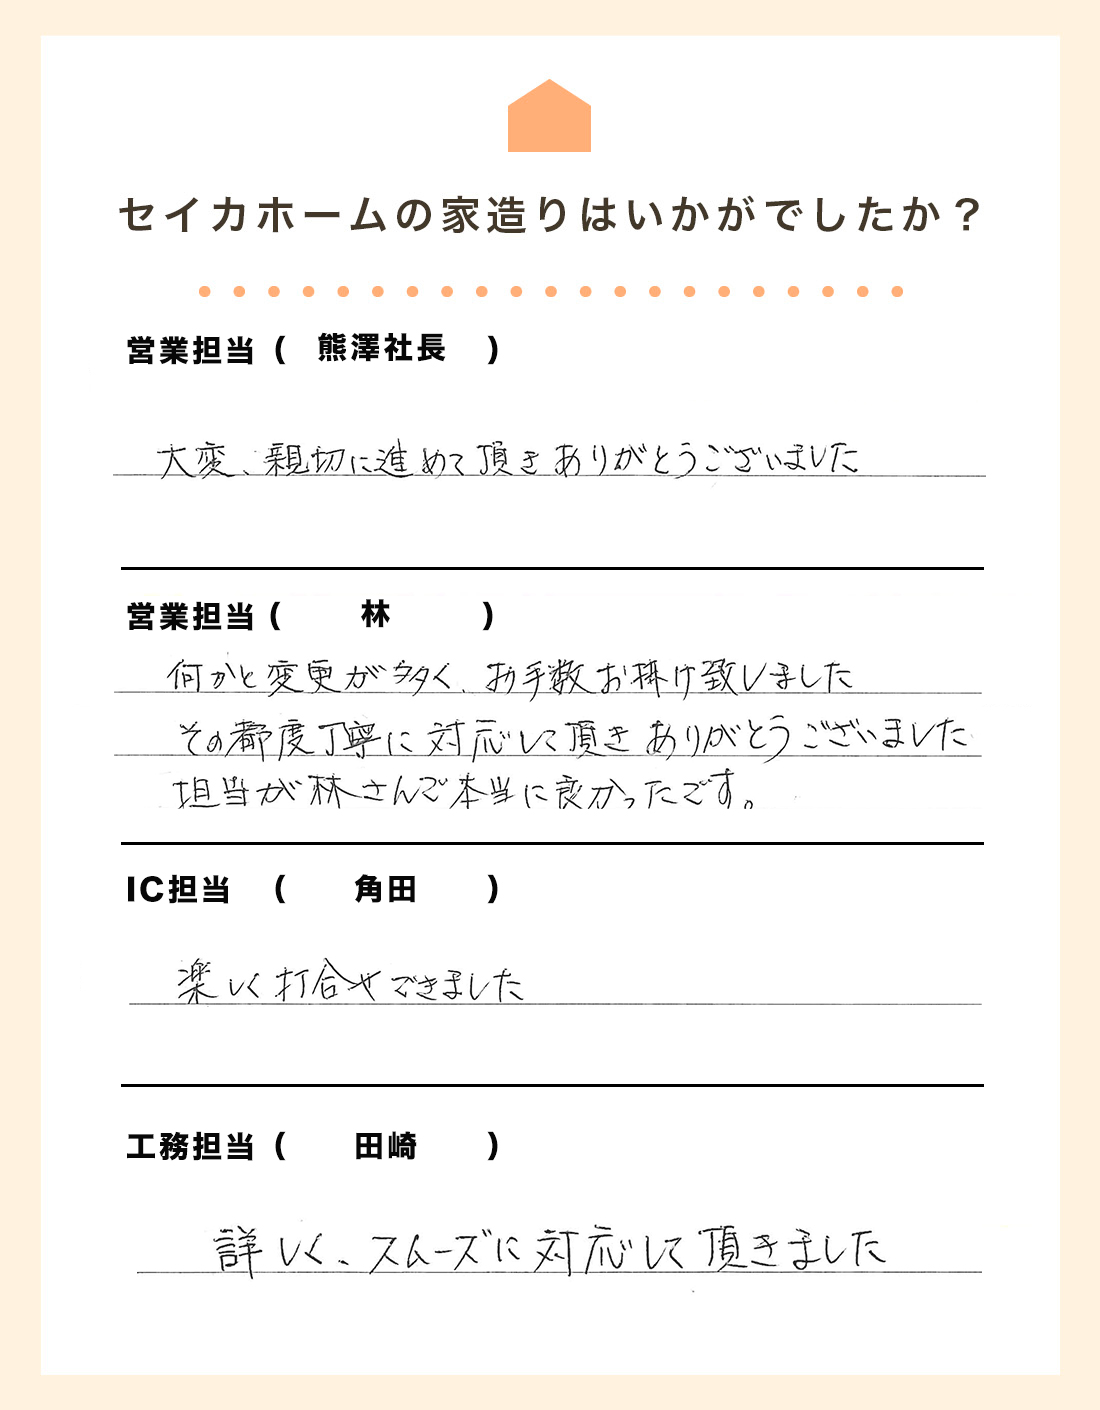 セイカホームの家造りはいかがでしたか？
営業担当 ( 熊澤社長 )
大変、親切に進めて頂きありがとうございました
営業担当 ( 林 )
何かと変更が多く、お手数お掛け致しました
その都度丁寧に対応して頂きありがとうございました
担当が林さんで本当に良かったです。
IC担当 ( 角田 )
楽しく打合せできました
工務担当 ( 田崎 )
詳しく、スムーズに対応して頂きました